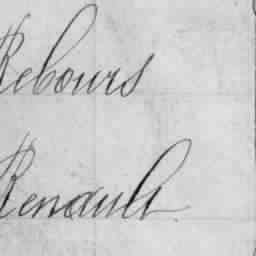 Rebours
Renault